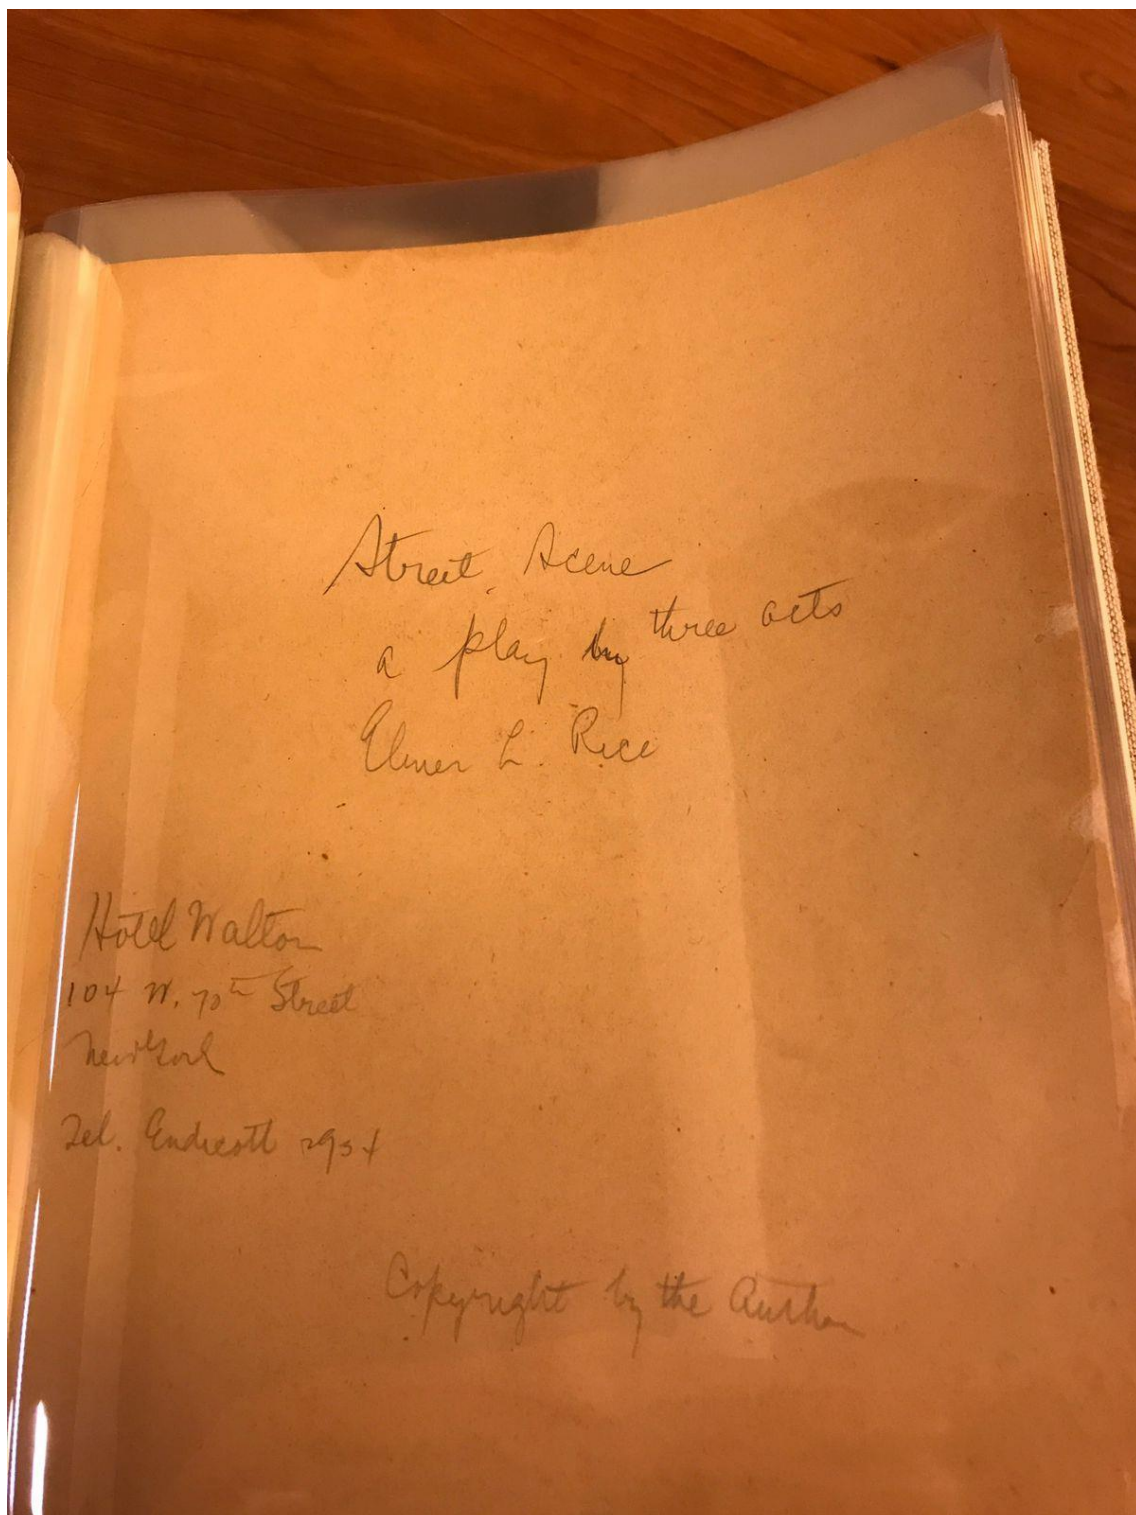 Street Scene
a play by three acts
Elmer L. Rice
Hotel Walton
104 W. 70th Street
New York
Tel. Endicott 2934
Copyright by the Author